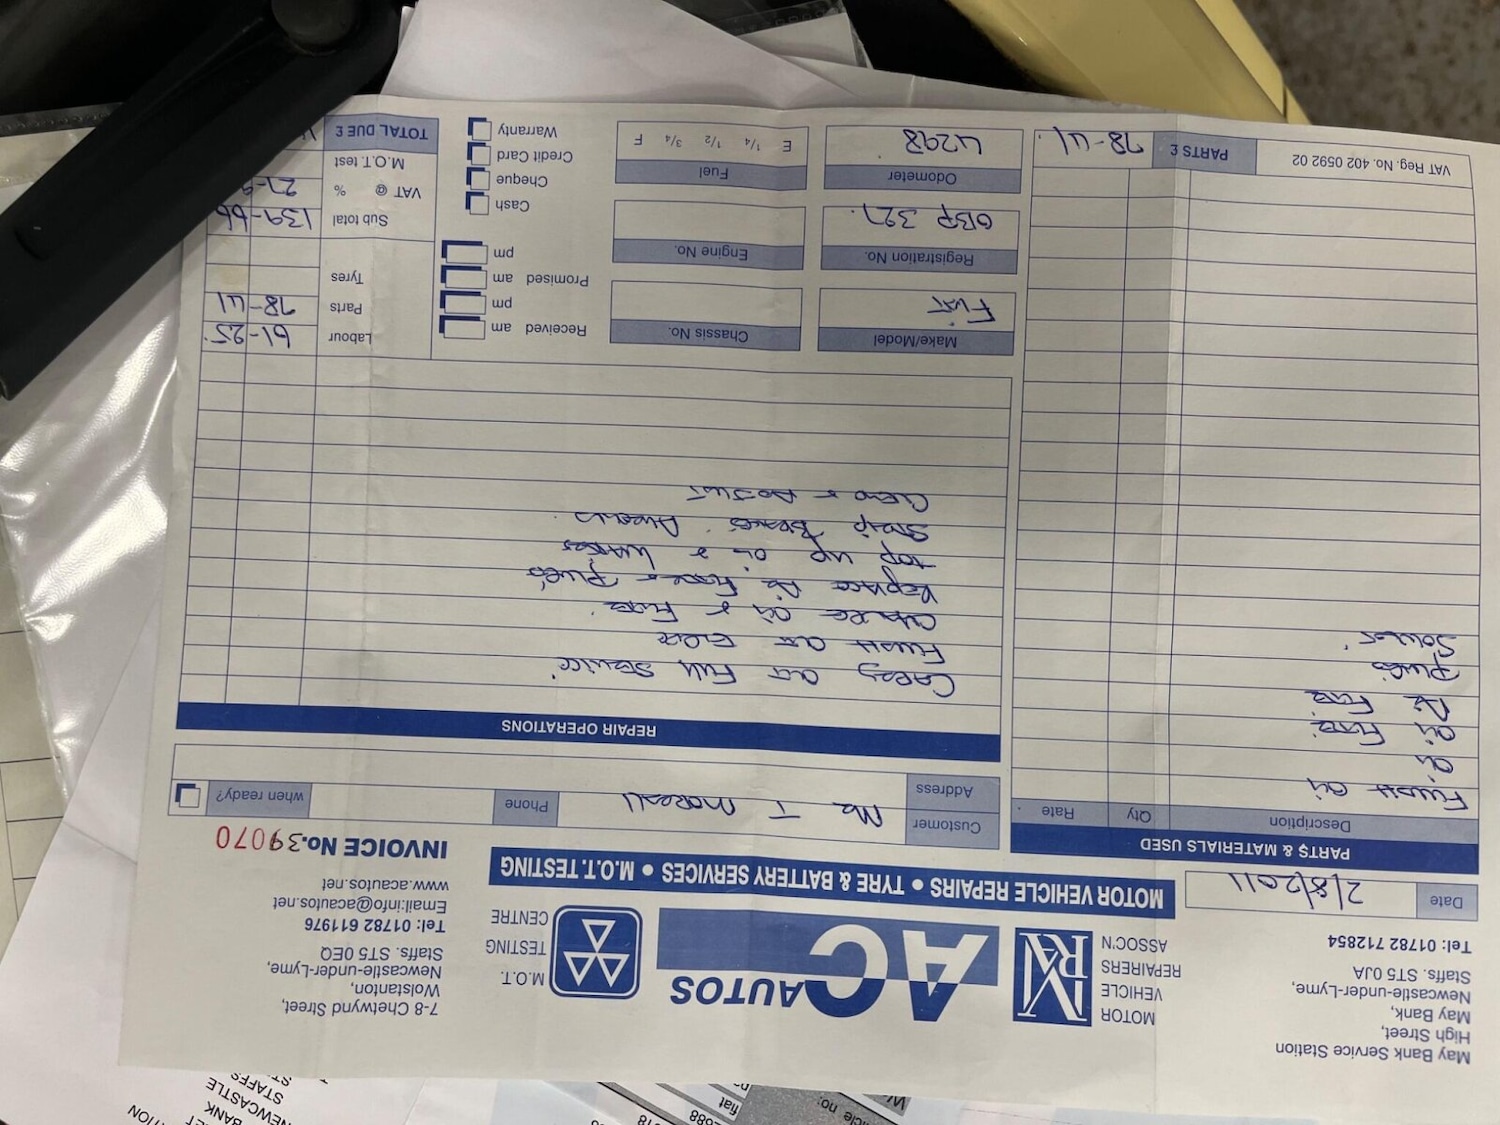 May Bank Service Station
High Street,
May Bank,
Newcastle-under-Lyme,
Staffs. ST5 0JA
Tel: 01782 712854
MOTOR
VEHICLE
REPAIRERS
ASSOC'N
AC AUTOS
M.O.T.
TESTING
CENTRE
7-8 Chetwynd Street,
Wolstanton,
Newcastle-under-Lyme,
Staffs. ST5 0EQ
Tel: 01782 611976
Email:info@acautos.net
www.acautos.net
Date 2/8/2011
MOTOR VEHICLE REPAIRS • TYRE & BATTERY SERVICES • M.O.T. TESTING
INVOICE No. 39070
PARTS & MATERIALS USED
Description Qty Rate
Flush oil
oil
oil Filter
Air Filter
Plugs
VAT Reg. No. 402 0592 02
PARTS £ 78-41
Customer Mr T
Phone
when ready?
Address
REPAIR OPERATIONS
Carry out Full Service
Flush out
Change oil & Filter
Replace Air Filter & Plugs
top up oil & Water
Strip Brakes
Clean & Adjust
Make/Model Fiat
Chassis No.
Registration No.
Engine No.
Odometer 4298
Fuel
E 1/4 1/2 3/4 F
Received am
pm
Promised am
pm
Cash
Cheque
Credit Card
Warranty
Labour 61-25
Parts 78-41
Tyres
Sub total 139-66
VAT @ %
M.O.T. test
TOTAL DUE £
NEWCASTLE
STAFFS